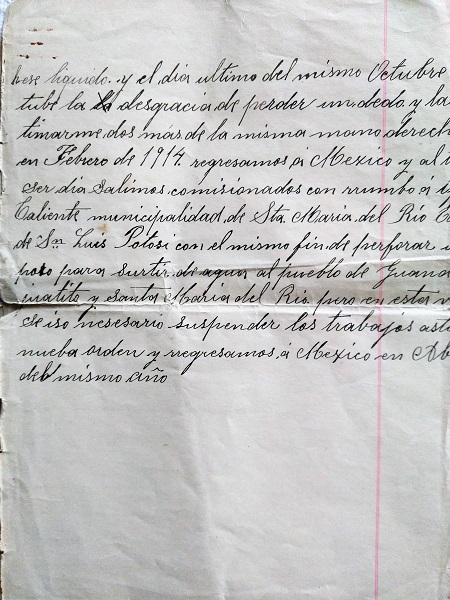 ese liquido. y el dia ultimo del mismo Octubre
tube la desgracia de perder un dedo y la
timarme dos mas de la misma mano derech
en Febrero de 1914. regresamos á Mexico y al t
ser dia salimos comisionados con rrumbo á
Caliente municipalidad de Sta. Maria del Rio
de Sn Luis Potosi con el mismo fin de perforar
poso para surtir de agua al pueblo de Guana
juatito y Santa Maria del Rio pero en esta
se iso nesesario suspender los trabajos asta
nueba orden y regresamos á Mexico en Ab
del mismo año